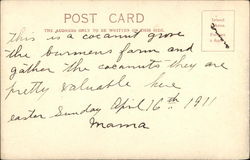 POST CARD
THE ADDRESS ONLY TO BE WRITTEN ON THIS SIDE.
this is a cocanut grove
the burmens farm and
gather the cocanuts they are
pretty valuable here
easter Sunday April 16th 1911
Mama